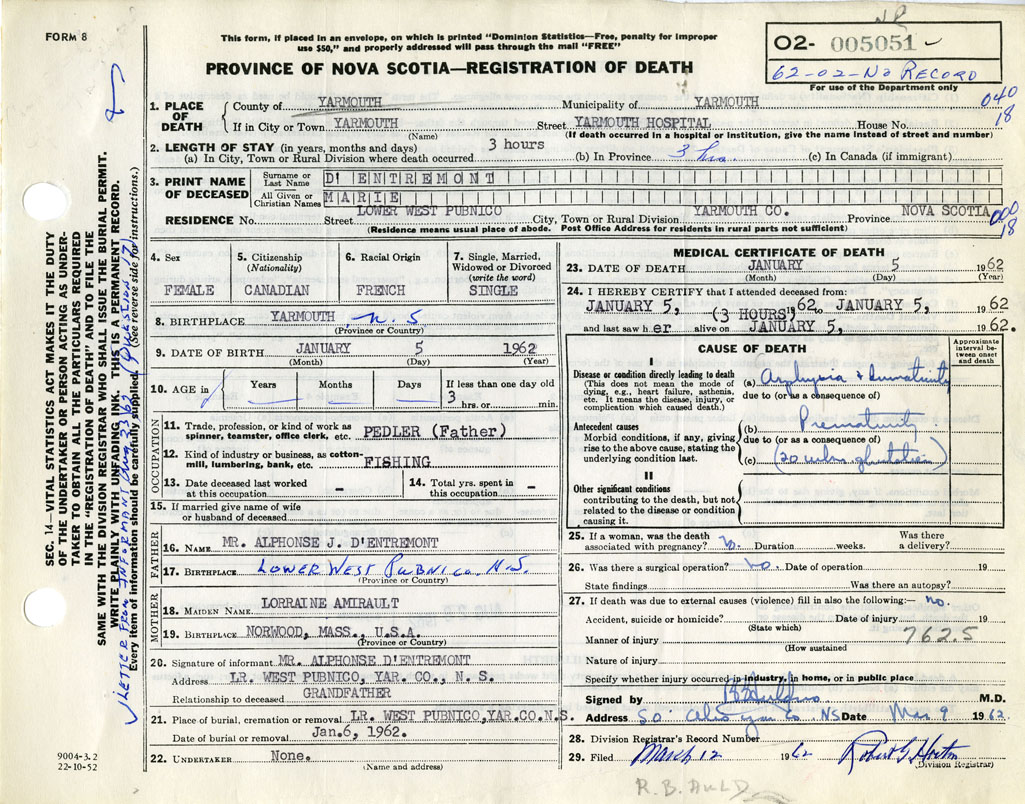 FORM 8
This form, if placed in an envelope, on which is printed "Dominion Statistics—Free, penalty for improper
use $50," and properly addressed will pass through the mail "FREE"
PROVINCE OF NOVA SCOTIA—REGISTRATION OF DEATH
NR
O2- 005051
62-02-No RECORD
For use of the Department only
1. PLACE OF DEATH County of YARMOUTH Municipality of YARMOUTH 040
If in City or Town YARMOUTH Street YARMOUTH HOSPITAL House No. 18
(Name) (If death occurred in a hospital or institution, give the name instead of street and number)
2. LENGTH OF STAY (in years, months and days) 3 hours
(a) In City, Town or Rural Division where death occurred (b) In Province 3 hrs. (c) In Canada (if immigrant)
3. PRINT NAME OF DECEASED Surname or Last Name D' ENTREMONT
All Given or Christian Names MARIE
RESIDENCE No. Street LOWER WEST PUBNICO City, Town or Rural Division YARMOUTH CO. Province NOVA SCOTIA 000
18
(Residence means usual place of abode. Post Office Address for residents in rural parts not sufficient)
4. Sex 5. Citizenship (Nationality) 6. Racial Origin 7. Single, Married, Widowed or Divorced (write the word)
FEMALE CANADIAN FRENCH SINGLE
8. BIRTHPLACE YARMOUTH N.S
(Province or Country)
9. DATE OF BIRTH JANUARY 5 1962
(Month) (Day) (Year)
10. AGE in Years Months Days If less than one day old
3 hrs. or min.
OCCUPATION
11. Trade, profession, or kind of work as
spinner, teamster, office clerk, etc. PEDLER (Father)
12. Kind of industry or business, as cotton-
mill, lumbering, bank, etc. FISHING
13. Date deceased last worked at this occupation - 14. Total yrs. spent in this occupation -
15. If married give name of wife
or husband of deceased
FATHER
16. NAME MR. ALPHONSE J. D'ENTREMONT
17. BIRTHPLACE LOWER WEST PUBNICO, N.S.
(Province or Country)
MOTHER
18. MAIDEN NAME LORRAINE AMIRAULT
19. BIRTHPLACE NORWOOD, MASS., U.S.A.
(Province or Country)
20. Signature of informant MR. ALPHONSE D'ENTREMONT
Address LR. WEST PUBNICO, YAR. CO., N. S.
Relationship to deceased GRANDFATHER
21. Place of burial, cremation or removal LR. WEST PUBNICO,YAR.CO.N.S.
Date of burial or removal Jan.6, 1962.
22. UNDERTAKER None.
(Name and address)
MEDICAL CERTIFICATE OF DEATH
23. DATE OF DEATH JANUARY 5 1962
(Month) (Day) (Year)
24. I HEREBY CERTIFY that I attended deceased from:
JANUARY 5, 1962 to JANUARY 5, 1962
(3 HOURS)
and last saw h er alive on JANUARY 5, 1962.
CAUSE OF DEATH
Approximate interval between onset and death
I
Disease or condition directly leading to death
(This does not mean the mode of
dying, e.g., heart failure, asthenia,
etc. It means the disease, injury, or
complication which caused death.)
(a) Asphyxia + Immaturity
due to (or as a consequence of)
Antecedent causes
Morbid conditions, if any, giving
rise to the above cause, stating the
underlying condition last.
(b) Prematurity.
due to (or as a consequence of)
(c)
II
Other significant conditions
contributing to the death, but not
related to the disease or condition
causing it.
25. If a woman, was the death
associated with pregnancy? Duration weeks. Was there
a delivery?
26. Was there a surgical operation? no. Date of operation 19
State findings Was there an autopsy?
27. If death was due to external causes (violence) fill in also the following:— no.
Accident, suicide or homicide? Date of injury 19
(State which)
Manner of injury 762.5
(How sustained
Nature of injury
Specify whether injury occurred in industry, in home, or in public place
Signed by M.D.
Address NS Date Mar. 9 1962.
28. Division Registrar's Record Number
29. Filed March 12 1962 Robert G Horton
(Division Registrar)
R.B. AULD
SEC. 14—VITAL STATISTICS ACT MAKES IT THE DUTY
OF THE UNDERTAKER OR PERSON ACTING AS UNDER-
TAKER TO OBTAIN ALL THE PARTICULARS REQUIRED
IN THE "REGISTRATION OF DEATH" AND TO FILE THE
SAME WITH THE DIVISION REGISTRAR WHO SHALL ISSUE THE BURIAL PERMIT.
WRITE PLAINLY WITH UNFADING INK. THIS IS A PERMANENT RECORD.
Every item of information should be carefully supplied. (See reverse side for instructions.)
LETTER FROM INFORMANT QUESTION 17
9004-3.2
22-10-52